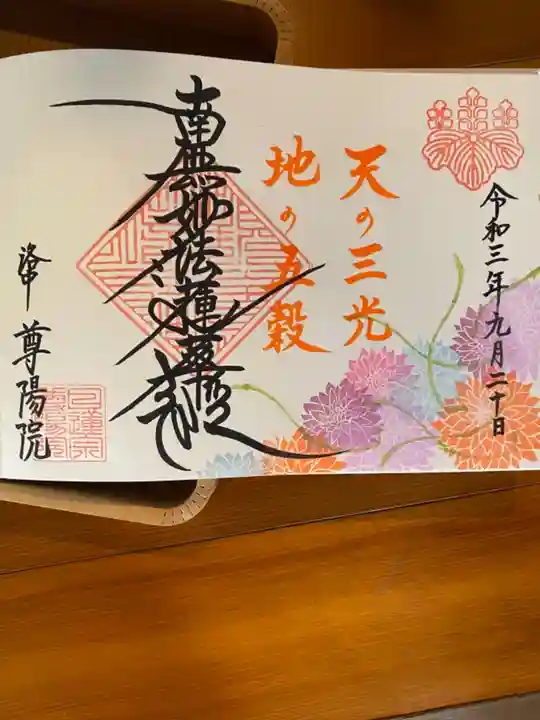 令和三年九月二十日
天の三光
地の五穀
南無妙法蓮華経
洛中 尊陽院
日蓮宗